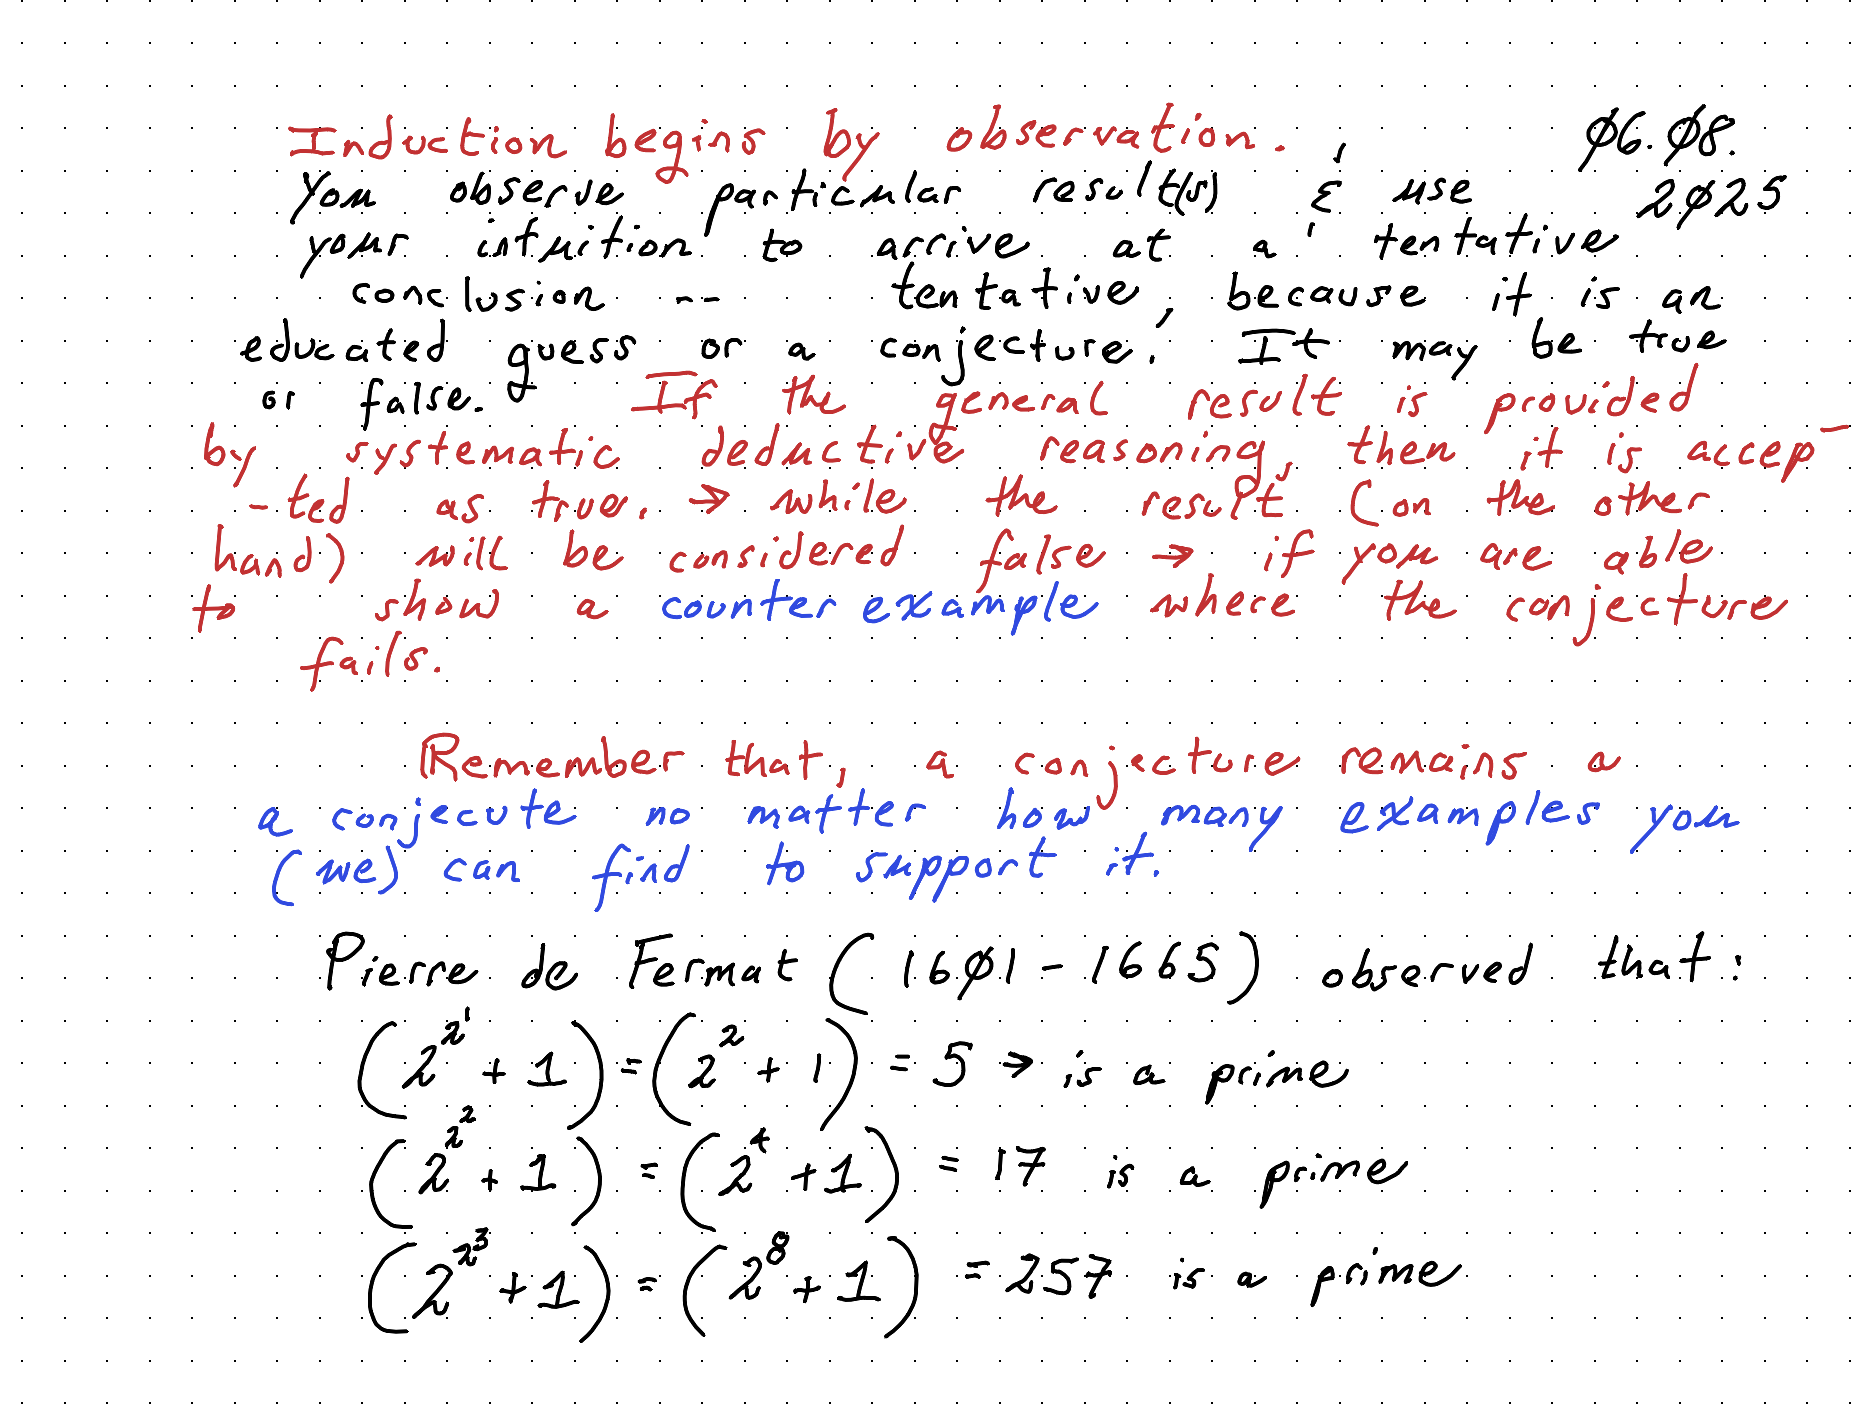 Induction begins by observation. Ø6.Ø8.
You observe particular result(s) & use 2Ø25
your intuition to arrive at a tentative
conclusion -- tentative, because it is an
educated guess or a conjecture. It may be true
or false. If the general result is provided
by systematic deductive reasoning, then it is accep-
-ted as true. → while the result (on the other
hand) will be considered false → if you are able
to show a counter example where the conjecture
fails.
Remember that, a conjecture remains a
a conjecute no matter how many examples you
(we) can find to support it.
Pierre de Fermat (16Ø1 - 1665) observed that:
(2^2^1 + 1) = (2^2 + 1) = 5 → is a prime
(2^2^2 + 1) = (2^4 + 1) = 17 is a prime
(2^2^3 + 1) = (2^8 + 1) = 257 is a prime